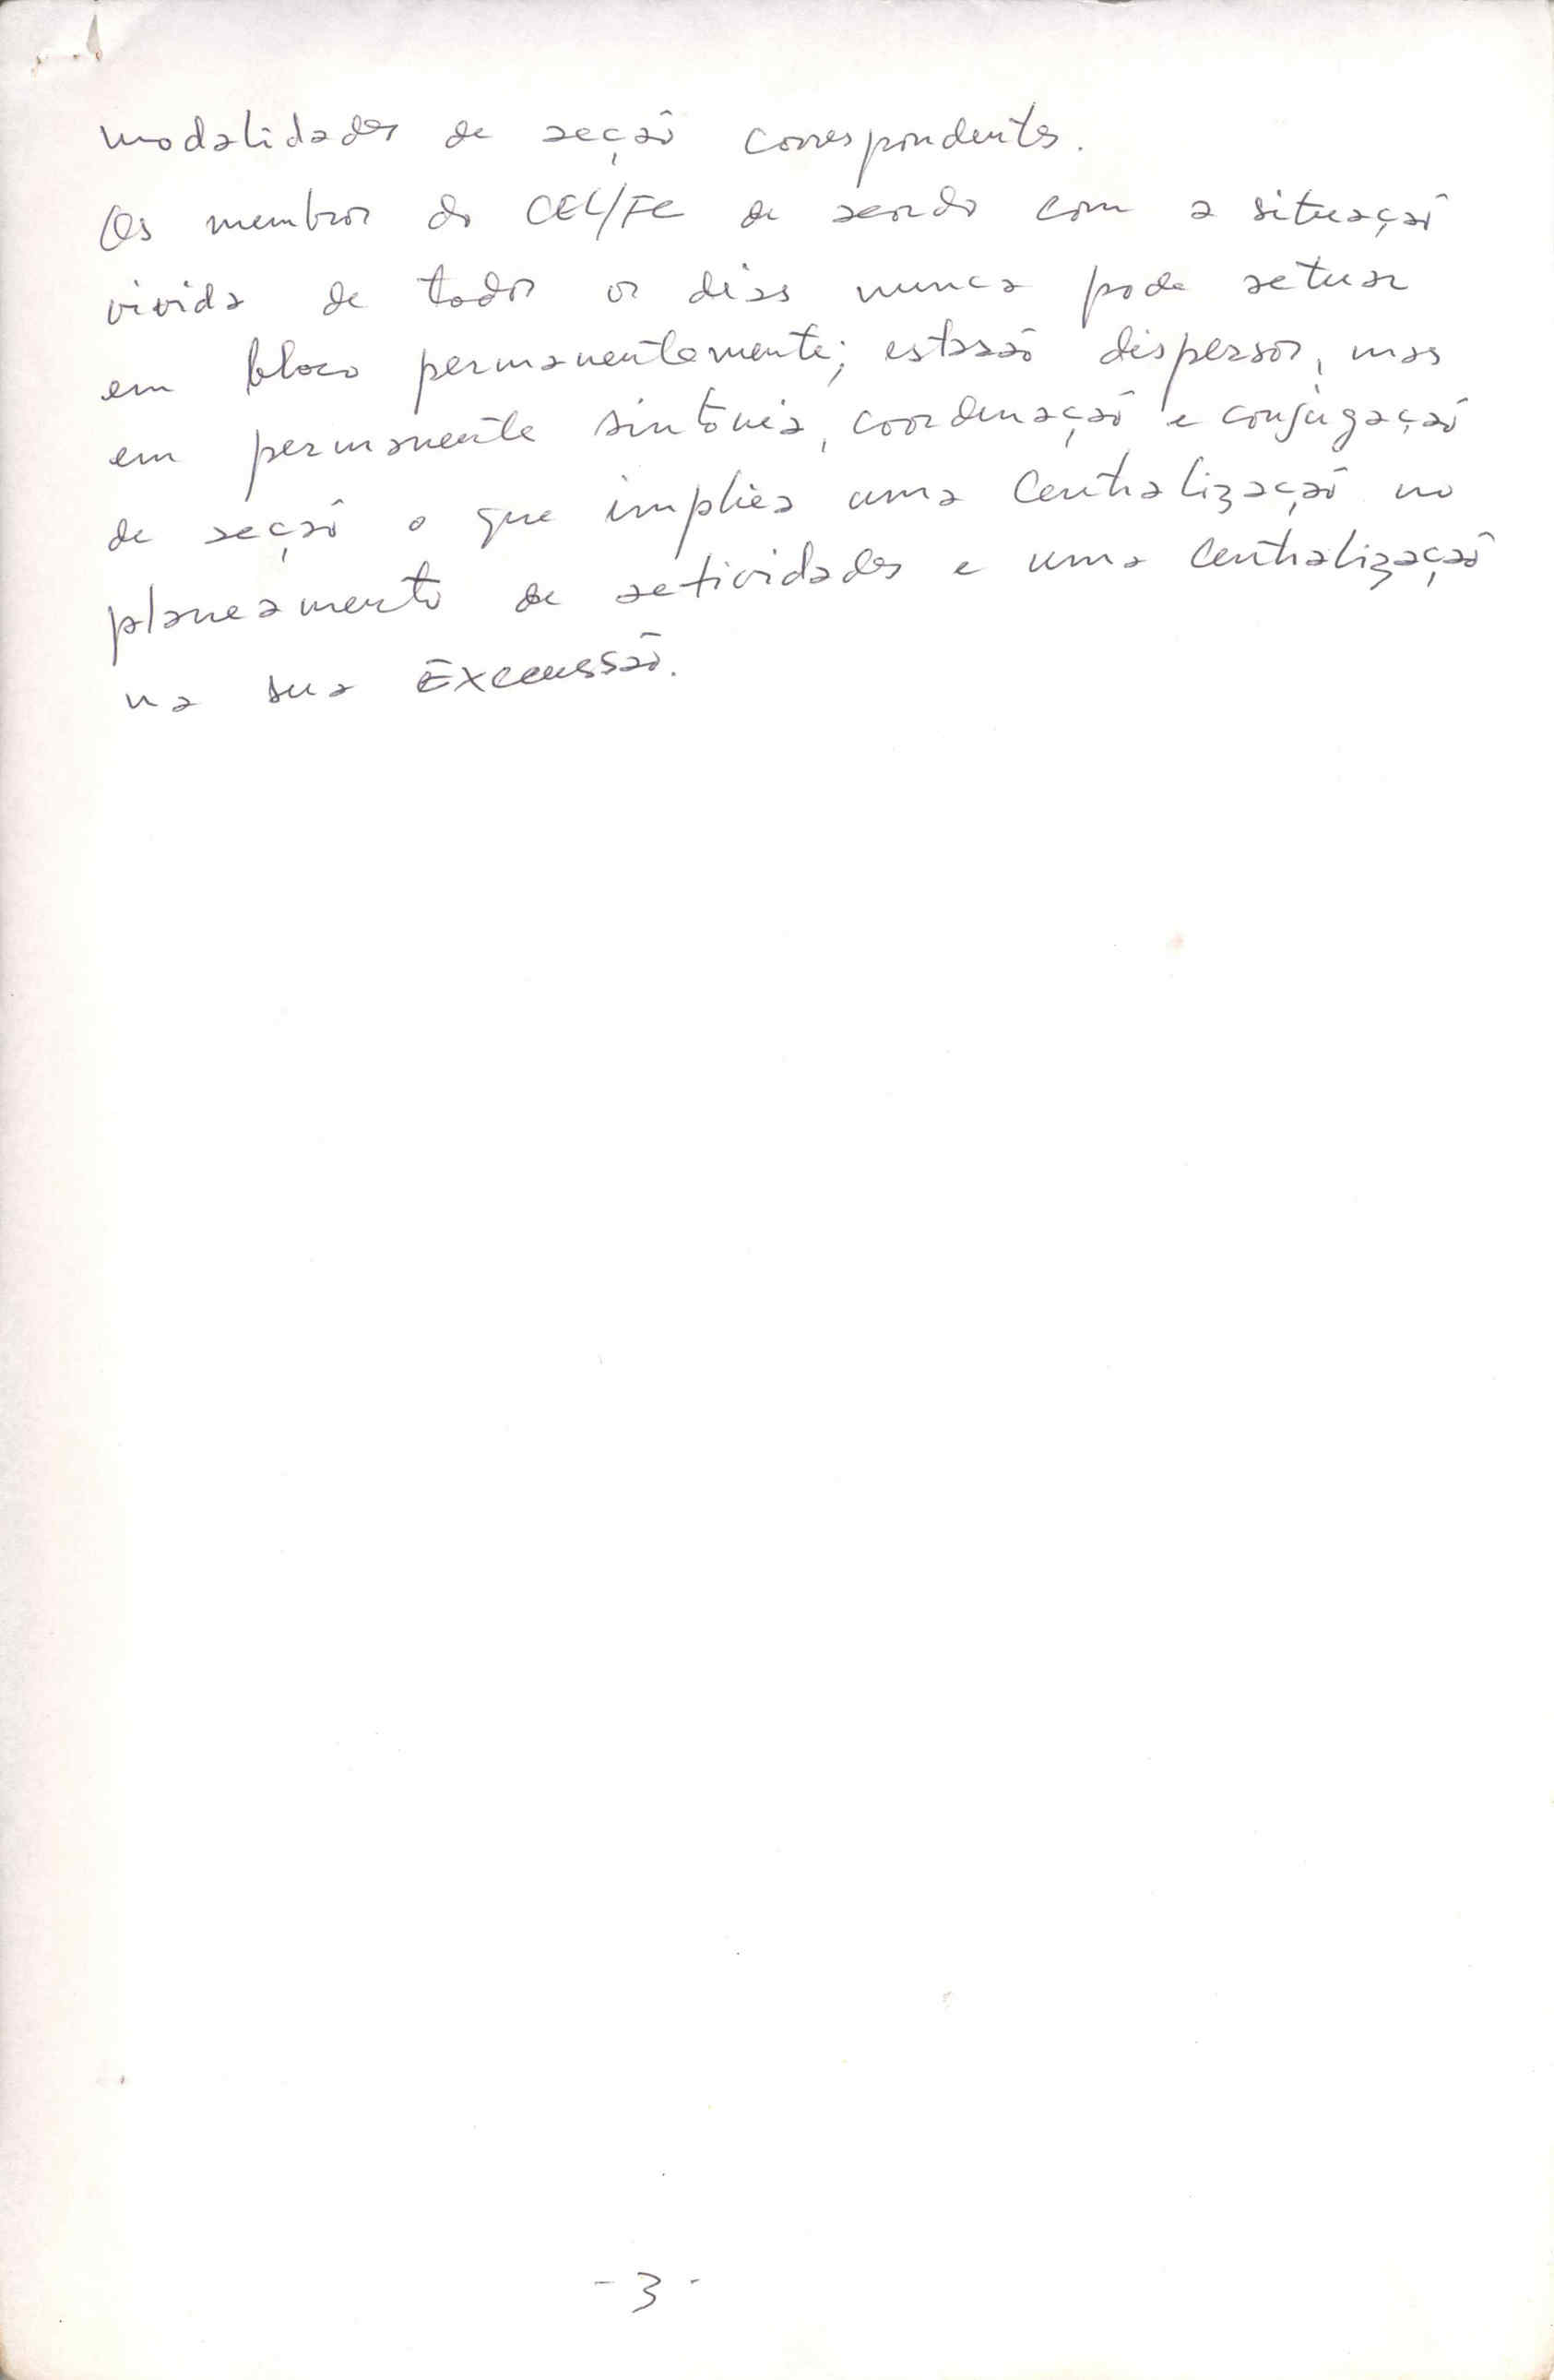 modalidades de acção correspondentes.
Os membros do CEL/FC de acordo com a situação
vivida de todos os dias nunca pode actuar
em bloco permanentemente; estarão dispersos, mas
em permanente sintonia, coordenação e conjugação
de acção o que implica uma centralização no
planeamento de actividades e uma centralização
na sua Execussão.
- 3 -